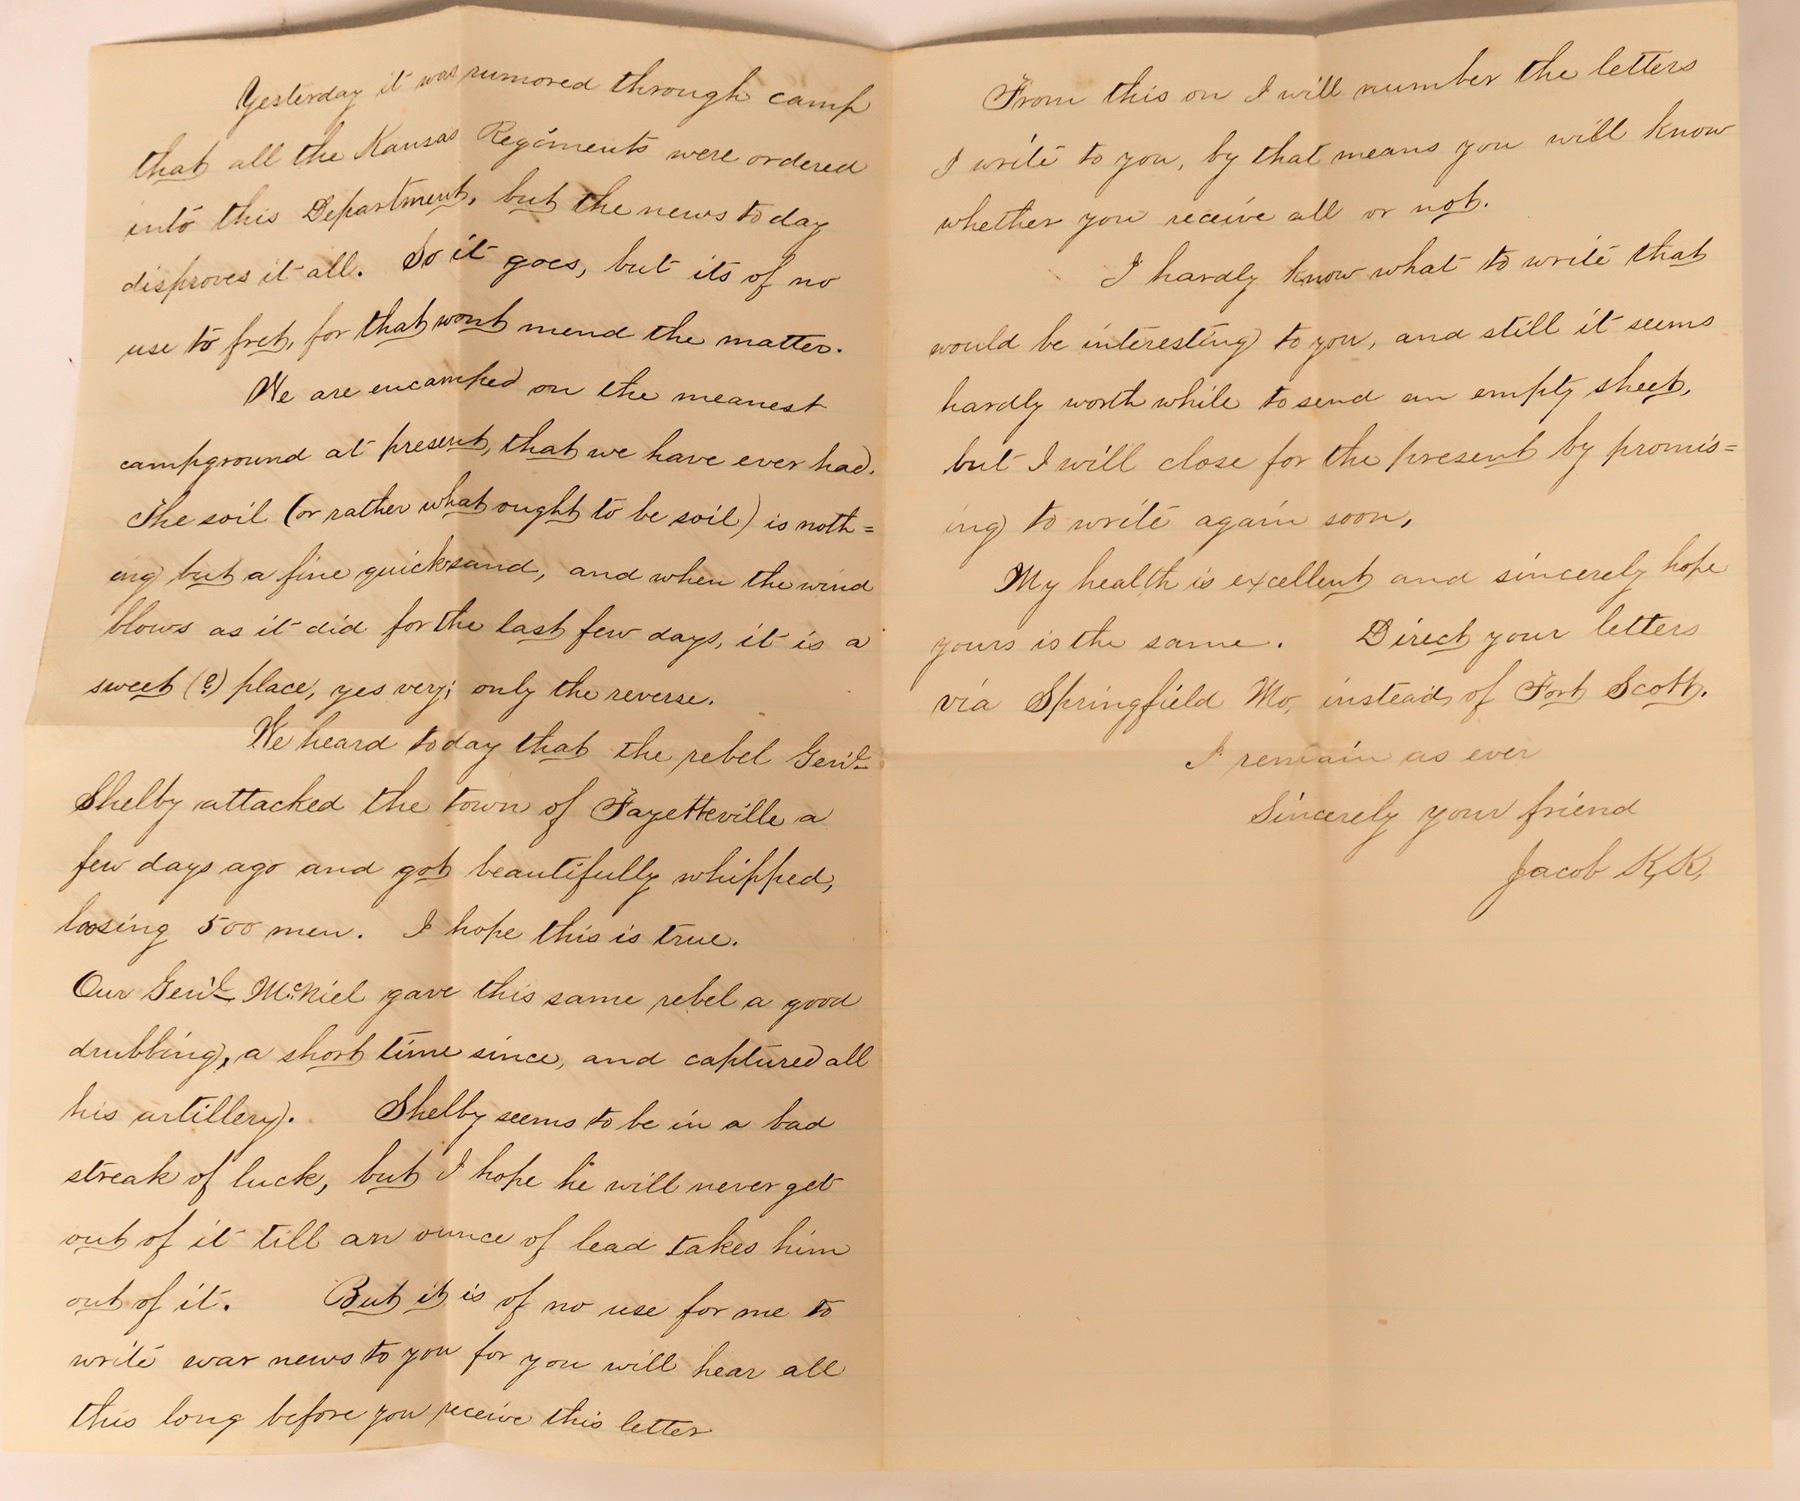 Yesterday it was rumored through camp
that all the Kansas Regiments were ordered
into this Department, but the news to day
disproves it all. So it goes, but its of no
use to fret, for that wont mend the matter.
We are encamped on the meanest
campground at present, that we have ever had.
The soil (or rather what ought to be soil) is noth=
ing but a fine quicksand, and when the wind
blows as it did for the last few days, it is a
sweet (?) place, yes very; only the reverse.
We heard today that the rebel Gen'l
Shelby attacked the town of Fayetteville a
few days ago and got beautifully whipped,
loosing 500 men. I hope this is true.
Our Gen'l McNiel gave this same rebel a good
drubbing, a short time since, and captured all
his artillery. Shelby seems to be in a bad
streak of luck, but I hope he will never get
out of it till an ounce of lead takes him
out of it. But it is of no use for me to
write war news to you for you will hear all
this long before you receive this letter
From this on I will number the letters
I write to you, by that means you will know
whether you receive all or not.
I hardly know what to write that
would be interesting to you, and still it seems
hardly worth while to send an empty sheet,
but I will close for the present by promis=
ing to write again soon,
My health is excellent and sincerely hope
yours is the same. Direct your letters
via Springfield Mo, instead of Fort Scott.
I remain as ever
Sincerely your friend
Jacob K, K,